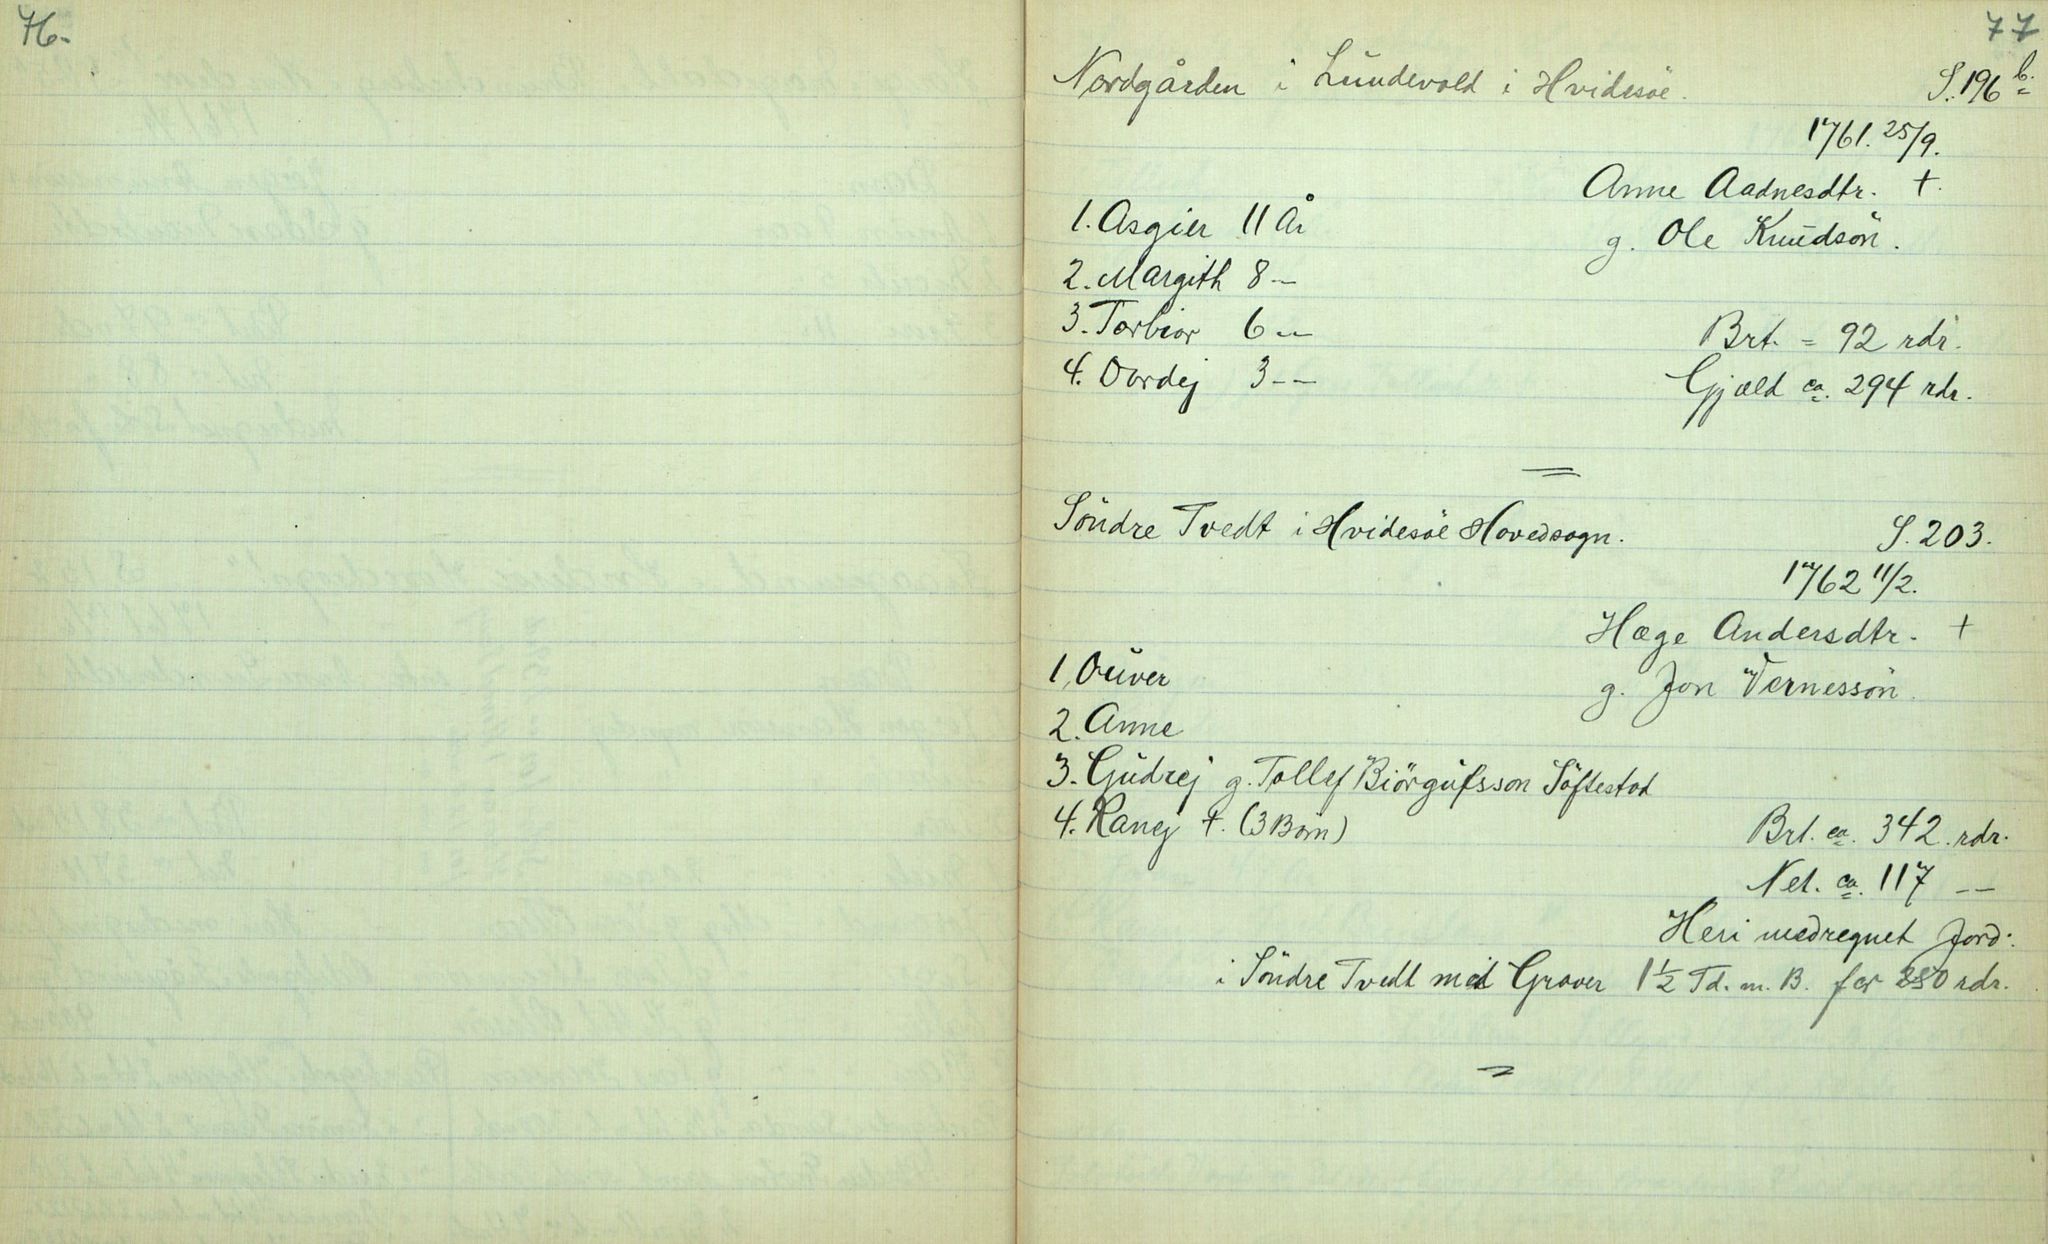 76.
77
Nordgården i Lundevald i Hvidesöe. S. 196 b.
1761. 25/9.
Anne Aadnesdtr. +.
1. Asgier 11 År
g. Ole Knudsön.
2. Margith 8 --
3. Torbior 6 --
Brt. = 92 rdr.
4. Dordej 3 --
Gjæld ca. 294 rdr.
Söndre Tvedt i Hvidesöe Hovedsogn. S. 203.
1762 11/2.
Hæge Andersdtr. +
1, Ouver
g. Jon Vernessön.
2. Anne
3. Gudrej g. Tollef Biörgufsson Söftestad
4. Ranej +. (3 Börn)
Brt. ca. 342. rdr.
Net. ca. 117 --
Heri medregnet Jord:
i Söndre Tvedt med Graver 1 1/2 Td. m. B. for 280 rdr.